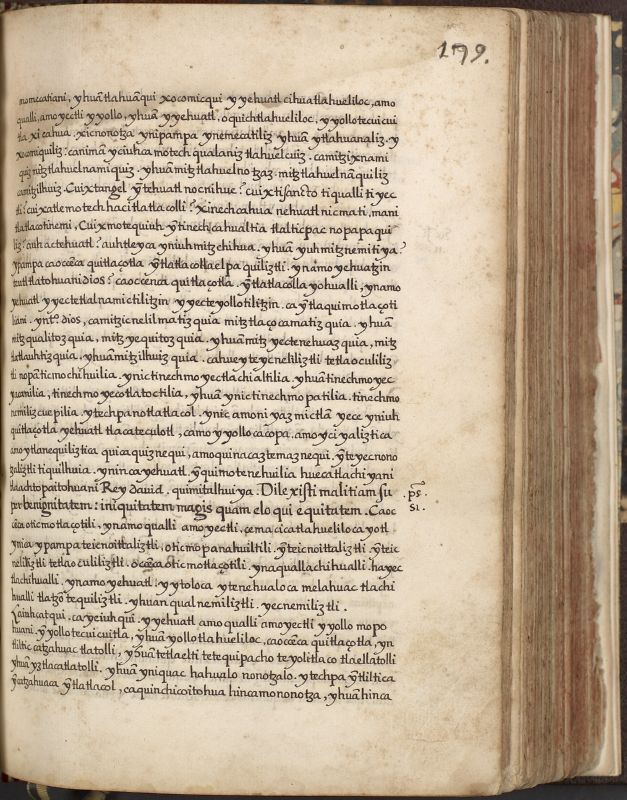 179.
momecatiani, yhuā tlahuāqui xocomicqui y yehuatl cihuatlahueliloc, amo
qualli, amo yectli y yollo, yhuā y yehuatl. oquichtlahueliloc. y yollo tecuicui
tla xicahua. xicnonotza ynipampa ynemecatiliz yhuā ytlahuanaliz. y
xocomiquiliz? caniman yciuhca motech qualaniz tlahuelcuiz. camitzixnami
quiz mitztlahuelnamiquiz. yhuā mitztlahuelnotzaz. mitztlahuelnāquiliz
camitzilhuiz. Cuix tangel ȳ tehuatl nocnihue? cuix tisancto ti qualli ti yec
tli? cuix atle motech haci tlatlacolli? xinechcahua nehuatl nicmati, mani
tlatlacotinemi, Cuix motequiuh ȳ tinechcahualtia tlalticpac no papaqui
liz? auh ac tehuatl? auh tleyca yniuh mitzchihua. yhuā yuh mitznemitiya?
ypampa ca occēca quitlaçotla ȳ tlatlacolla elpaquiliztli. ynamo yehuatzin
teutl tlatohuani dios? ca occenca quitlaçotla. ȳ tlatlacolla yohualli, ynamo
yehuatl y yectetlalnamictilitzin. y yecteyollotilitzin. ca ȳtla quimotlaçoti
liani. yntº. dios, camitzicnelilmatizquia mitztlaçocamatizquia. yhuā
mitzqualitozquia, mitzyequitozquia. yhuā mitzyectenehuazquia, mitz
tlatlauhtizquia. yhuā mitzilhuizquia. cahueyteycneliliztli tetlaoculiliz
tli nopāticmochihuilia. ynic tinechmoyectlachialtilia. yhuā tinechmoyec
yacanilia, tinechmoyecotlatoctilia, yhuā ynic tinechmopatilia. tinechmo
nemilizcuepilia. ytechpa notlatlacol. ynic amo niyaz mictlā yece yniuh
quitlaçotla yehuatl tlacatecolotl, camo yyollocacopa. amo yciyaliztica
amo ytlanequiliztica quicaquiznequi, amo quinacaztemaznequi. ȳ teyecnono
tzaliztli tiquilhuia. ynin ca yehuatl ȳ quimotenehuilia huecatlachiyani
tlaachtopaitohuani Rey dauid. quimitalhuiya: Dilexisti malitiam su
per benignitatem: iniquitatem magis quam eloqui equitatem. Caoc
cēca oticmotlaçotili. ynamo qualli amo yectli. çemacicatlahuelilocayotl
ynica ypampa teicnoittaliztli, oticmopanahuiltili. ȳ teicnoittaliztli ȳ teic
neliliztli tetlaoculiliztli. occēca oticmotlaçotili. ynaquallachihualli. hayec
tlachihualli. ynamo yehuatl? yytoloca ytenehualoca melahuac tlachi
hualli tlatzōtequiliztli. yhuan qualnemiliztli. yecnemiliztli.
Caiuhcatqui. cayeiuhqui. yyehuatl amo qualli amo yectli yyollo mopo
huani. ȳ yyollo tecuicuitla, yhuā yyollo tlahueliloc, caoccēca quitlaçotla, yn
tliltic catzahuac tlatolli, yhuā tetlaelti tetequipacho teyolitlaco tlaellatolli
yhuā yztlacatlatolli. yhuā yniquac hahualo nonotzalo. ytechpa ȳtliltica
ȳcatzahuaca ȳtlatlacol, ca quinchicoitohua hincamononotza, yhuā hinca
ps.
51.